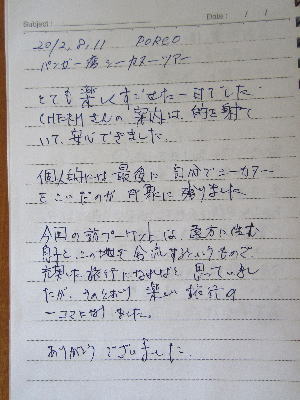 Subject: Date: / /
2012.8.11 PORCO
パンガー湾シーカヌーツアー
とても楽しくすごせた一日でした。
CHERRYさんの案内は、的を射て
いて、安心できました。
個人的には最後に自力でシーカヌー
をこいだのが 印象に残りました。
今回の訪プーケットは、東京に住む
息子と、この地を合流するというもので、
充実した旅行になればと思っていまし
たが、そのとおり 楽しい旅行の
一コマになりました。
ありがとうございました。